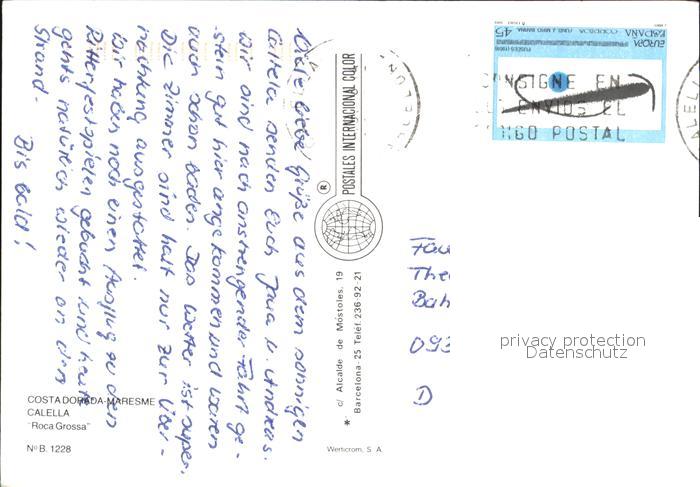 Viele liebe Grüße aus dem sonnigen
Calella senden Euch Jana u. Andreas.
Wir sind nach anstrengender Fahrt ge-
stern gut hier angekommen und waren
auch schon baden. Das Wetter ist super.
Die Zimmer sind halt nur zur Über-
nachtung ausgestattet.
Wir haben noch einen Ausflug zu den
Ritterfestspielen gebucht und heute
gehts natürlich wieder an den
Strand.
Bis bald!
COSTA DORADA-MARESME
CALELLA
"Roca Grossa"
Nº B. 1228
POSTALES INTERNACIONAL COLOR
®
* c/ Alcalde de Móstoles, 19
Barcelona-25 Teléf. 236-92-21
Werticrom, S. A.
EUROPA
ESPAÑA
45
CORREOS
CONSIGNE EN
ENVIOS EL
POSTAL
Fam
The
Bah
093
D
privacy protection
Datenschutz